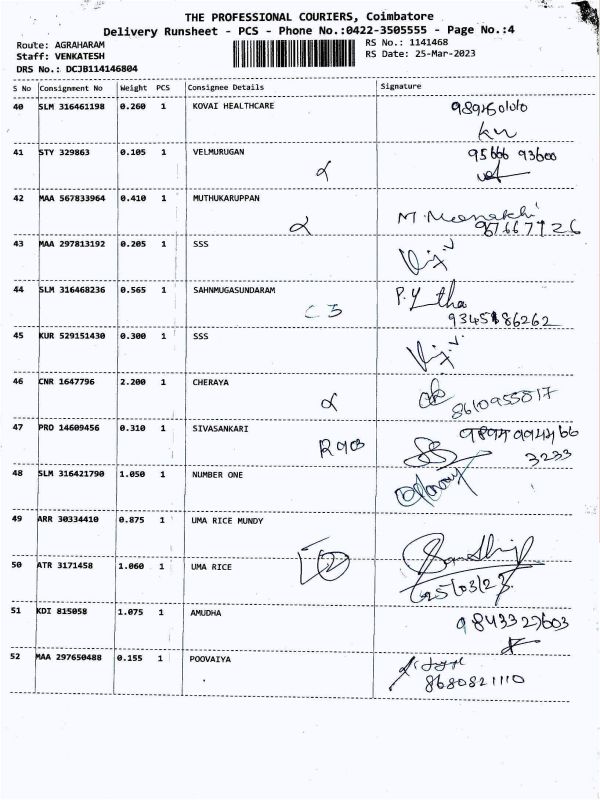 THE PROFESSIONAL COURIERS, Coimbatore
Delivery Runsheet - PCS - Phone No.:0422-3505555 - Page No.:4
Route: AGRAHARAM
RS No.: 1141468
Staff: VENKATESH
RS Date: 25-Mar-2023
DRS No.: DCJB114146804
S No Consignment No Weight PCS Consignee Details Signature
40 SLM 316461198 0.260 1 KOVAI HEALTHCARE
41 STY 329863 0.105 1 VELMURUGAN 95666 93600
42 MAA 567833964 0.410 1 MUTHUKARUPPAN M. Meenakchi
43 MAA 297813192 0.205 1 SSS
44 SLM 316468236 0.565 1 SAHNMUGASUNDARAM
C 5
45 KUR 529151430 0.300 1 SSS
46 CNR 1647796 2.200 1 CHERAYA
8610955817
47 PRO 14609456 0.310 1 SIVASANKARI
3233
48 SLM 316421790 1.050 1 NUMBER ONE
49 ARR 30334410 0.875 1 UMA RICE MUNDY
50 ATR 3171458 1.060 1 UMA RICE
25/03/23
51 KDI 815058 1.075 1 AMUDHA 9843327603
52 MAA 297650488 0.155 1 POOVAIYA
8680821110